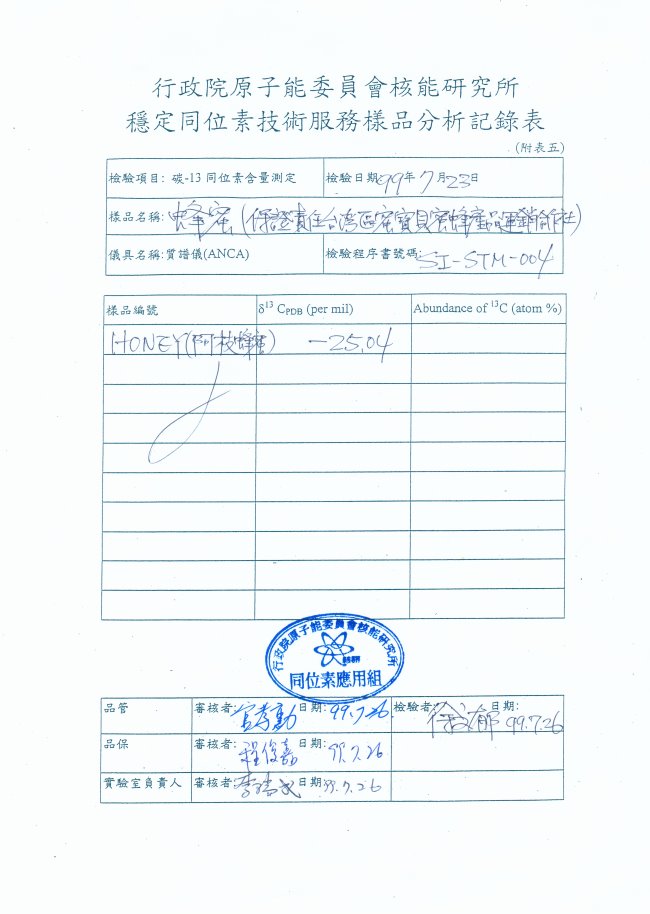 行政院原子能委員會核能研究所
穩定同位素技術服務樣品分析記錄表
(附表五)
檢驗項目: 碳-13 同位素含量測定 檢驗日期 99年7月23日
樣品名稱: 蜂蜜(保證責任台湾區蜜寶貝蜜蜂產品運銷合作社)
儀具名稱: 質譜儀(ANCA) 檢驗程序書號碼: SI-STM-004
樣品編號 δ¹³ C_PDB (per mil) Abundance of ¹³C (atom %)
HONEY(阿枝蜂蜜) -25.04
行政院原子能委員會核能研究所
同位素應用組
品管 審核者: 日期: 99.7.26 檢驗者: 徐文郁 日期: 99.7.26
品保 審核者: 程俊嘉 日期: 99.7.26
實驗室負責人 審核者: 日期: 99.7.26